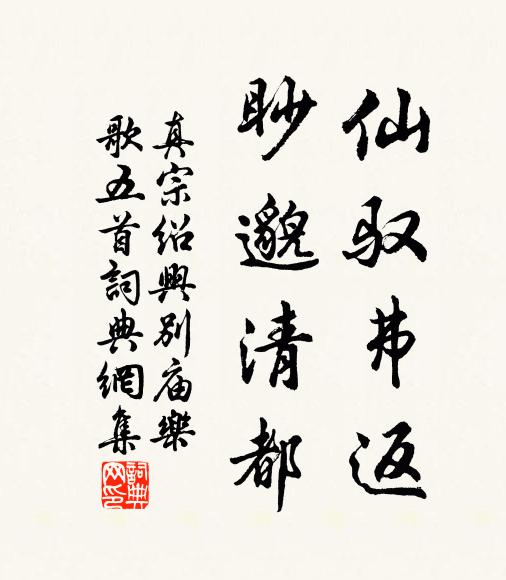 仙驭弗返
眇邈清都
真宗绍興别庙樂
歌五首詞典網集
詞典网印